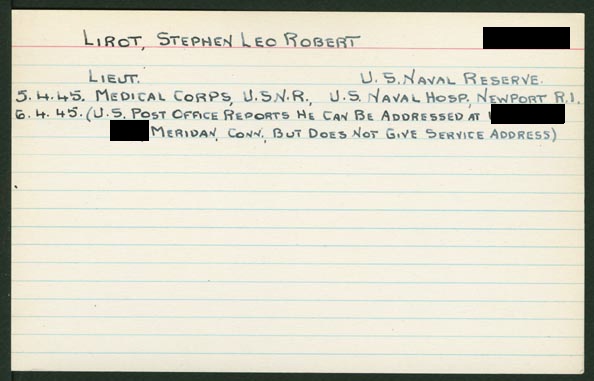 LIROT, STEPHEN LEO ROBERT
LIEUT. U.S. NAVAL RESERVE.
5.4.45. MEDICAL CORPS, U.S.N.R., U.S. NAVAL HOSP, NEWPORT R.I.
6.4.45. (U.S. POST OFFICE REPORTS HE CAN BE ADDRESSED AT
MERIDAN, CONN, BUT DOES NOT GIVE SERVICE ADDRESS)